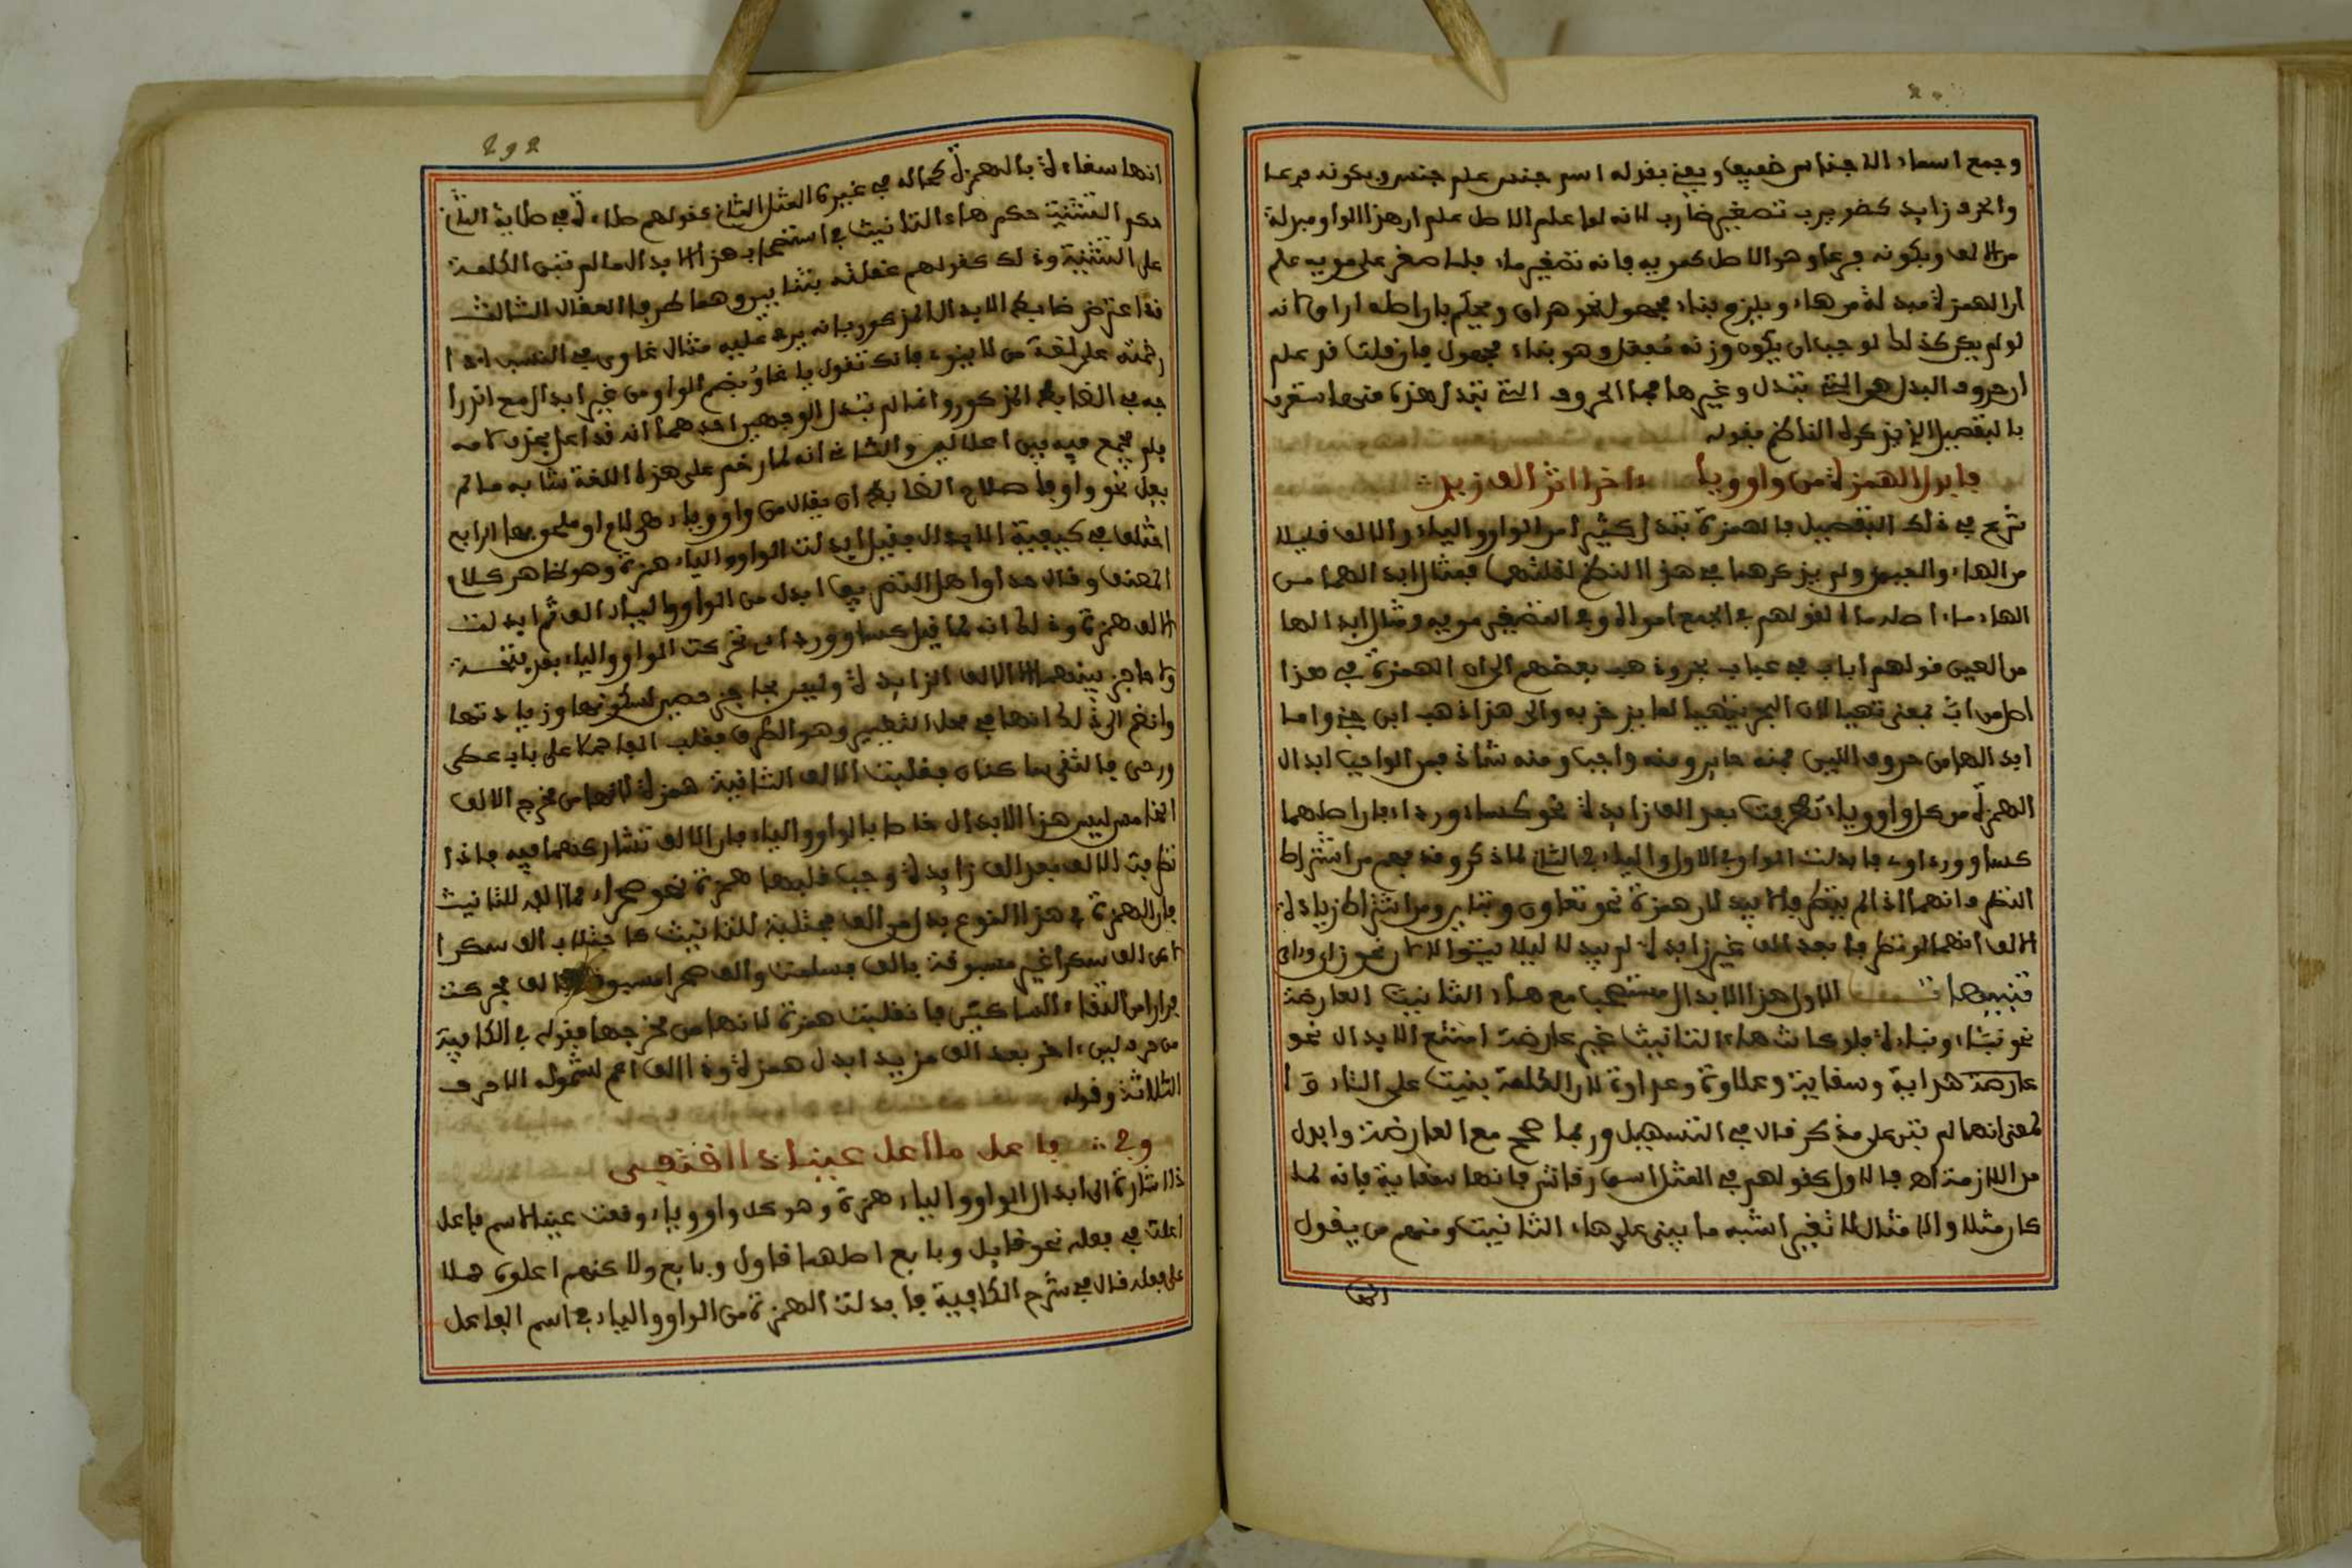 وجمع اسماء الاجناس ضعيف ويعني بقوله اسم جنس علم جنس وبكونه فرعا
والحرف زايد كضويرب تصغير ضارب لانه لما علم الاصل علم ان هذا الواو مبدلة
من الالف وبكونه فرعا وهو الاصل كمويه فانه تصغير ماء فلما صغر على مويه علم
ان الهمزة مبدلة من هاء وبلزوم بناء مجهول نحو هراق وحكم بان اصله اراق لانه
لو لم يكن كذلك لوجب ان يكون وزنه هفعل وهو بناء مجهول فان قلت قد علم
ان حروف البدل هي التي تبدل وغيرها فما الحروف التي تبدل هذه منها استغرب
بالتفصيل الذي يذكره الناظم بقوله
فابدل الهمزة من واو ويا ءاخرا اثر الف زيد
شرع في ذلك التفصيل فالهمزة تبدل كثيرا من الواو والياء والالف قليلا
من الهاء والعين ولم يذكرهما في هذا النظم لقلتهما فمثال ابدالهما من
الهاء ماء اصله ماه لقولهم في الجمع امواه وفي التصغير مويه ومثال ابدالها
من العين قولهم اباب في عباب بحر وذهب بعضهم الى ان الهمزة في هذا
اصل من اب بمعنى تهيا لان البحر يتهيا لما يزخر به والى هذا ذهب ابن جني واما
ابدالها من حروف اللين فمنه جايز ومنه واجب ومنه شاذ فمن الواجب ابدال
الهمزة من كل واو وياء تطرفت بعد الف زايدة نحو كساء ورداء فان اصلهما
كساو ورداي فابدلت الواو في الاول والياء في الثاني لما ذكر وقد فهم من اشتراط
التطرف انهما اذا لم يتطرفا لا يبدلان همزة نحو تعاون وتباين ومن اشتراط زيادة
الالف انهما لو تطرفا بعد الف غير زايدة لم يبدلا ليلا يتوالا نحو زاي وراي
تنبيهات الاول هذا الابدال مستصحب مع هاء التانيث العارضة
نحو بناء وبناءة فلو كانت هاء التانيث غير عارضة امتنع الابدال نحو
عارضة هداية وسقاية وعلاوة وعداوة لان الكلمة بنيت على التاء
بمعنى انها لم تبن على مذكر قال في التسهيل وربما صحح مع العارضة وابدل
من اللازمة اهـ فالاول كقولهم في المثل اسق رقاش فانها سقاية فانه لما
كان مثلا والامثال لا تغير اشبه ما بني على هاء التانيث ومنهم من يقول
انها
292
انها سقاءة بالهمز كحاله في غير المثل الثاني كقولهم صلاءة في صلاية الثاني
حكم التثنية حكم هاء التانيث في استصحاب هذا الابدال ما لم تبن الكلمة
على التثنية وذلك كقولهم عقلته بثنايين وهما طرفا العقال الثالث
قد اعترض ضابط الابدال المذكور بانه يرد عليه مثال غاوي في النسب اذا
رخمته على لغة من لا ينوي فانك تقول يا غاو بضم الواو من غير ابدال مع اندرا
جه في الضابط المذكور وانما لم تبدل لوجهين احدهما انه قد اعل بحذف لامه
فلم يجمع فيه بين اعلالين والثاني انه لما رخم على هذه اللغة شابه ما لم
يعل نحو واو فاصلاح الضابط ان يقال من واو وياء هي لام او ملحق بها الرابع
اختلف في كيفية الابدال فقيل ابدلت الواو والياء همزة وهو ظاهر كلام
المصنف وقال حذاق اهل التصريف ابدل من الواو والياء الف ثم ابدلت
الالف همزة وذلك انه لما قيل كساو ورداي تحركت الواو والياء بعد فتحة
ولا حاجز بينهما الا الالف الزايدة وليس بحاجز حصين لسكونها وزيادتها
وانضم الى ذلك انها في محل التغيير وهو الطرف فقلبت الفا حملا على باب عصى
ورحى فالتقى ساكنان فقلبت الالف الثانية همزة لانها من مخرج الالف
الخامس ليس هذا الابدال خاصا بالواو والياء فان الالف تشاركهما فيه فاذا
تطرفت الالف بعد الف زايدة وجب قلبها همزة نحو صحراء مما الفه للتانيث
فان الهمزة في هذا النوع بدل من الف مجتلبة للتانيث كاجتلاب الف سكرا
لاكن الف سكرا غير مسبوقة بالف فسلمت والف صحرا مسبوقة بالف فحركت
فرارا من التقاء الساكنين فانقلبت همزة لانها من مخرجها فقوله في الكافية
من حرف لين ءاخر بعد الف مزيد ابدل همزة وذا الف اعم لشموله الاحرف
الثلاثة وقوله
وفي فاعل ما اعل عينا ذا اقتفي
ذا اشارة الى ابدال الواو والياء همزة وهو كل واو وياء وقعت عينا لاسم فاعل
اعلت في فعله نحو قايل وبايع اصلهما قاول وبايع ولاكنهم اعلوه حملا
على فعله قال في شرح الكافية فابدلت الهمزة من الواو والياء في اسم الفاعل